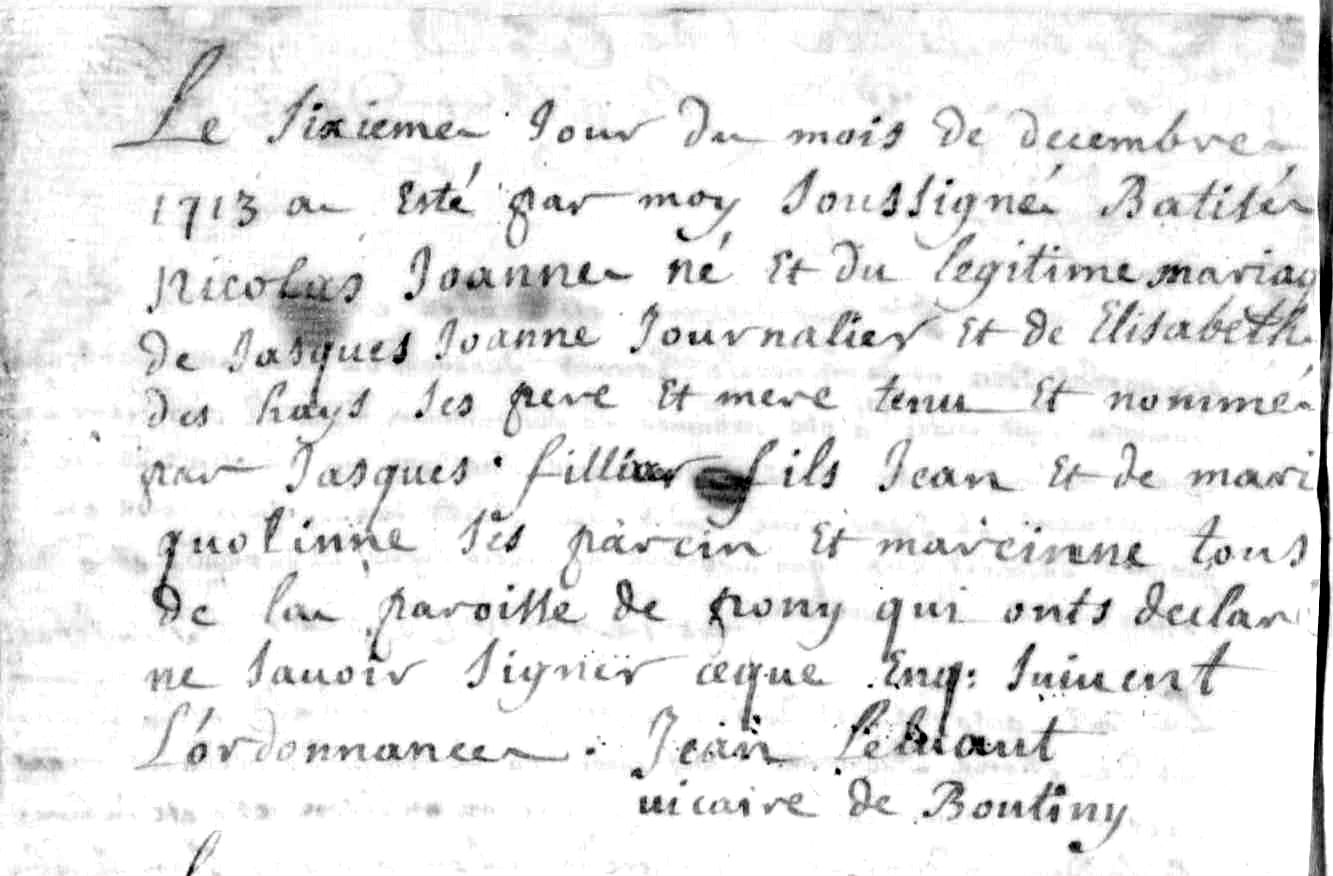 Le sixieme Jour du mois de decembre
1713 a Esté par moy soussigné Batisé
Nicolas Joanne né Et du legitime mariag
de Jasques Joanne Journalier Et de Elisabeth
des hays ses pere Et mere tenu Et nommé
par Jasques fillixer fils Jean Et de mari
quotinne ses parein Et mareinne tous
de la paroisse de pony qui onts declar
ne savoir signer ceque Enq: suiuent
L'ordonnance. Jean
uicaire de Boutiny